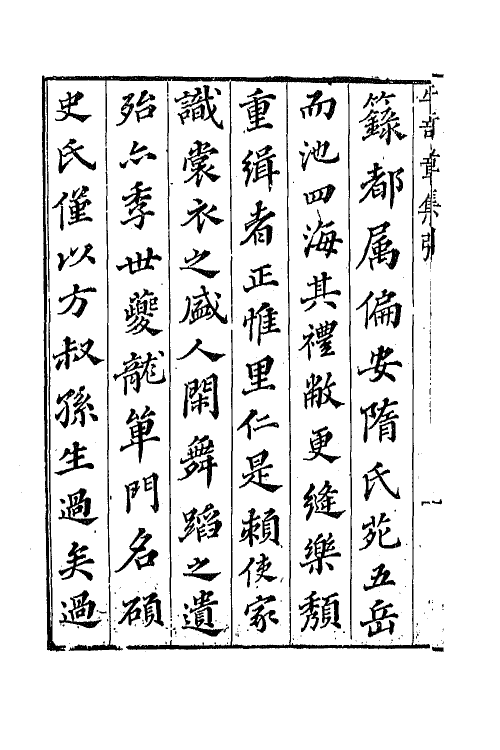 籙都属偏安隋氏苑五岳
而池四海其禮敝更縫樂頽
重緝者正惟里仁是頼使家
識裳衣之盛人閑舞蹈之遺
殆亦季世夔龍篳門名碩
史氏僅以方叔孫生過矣過
章集引